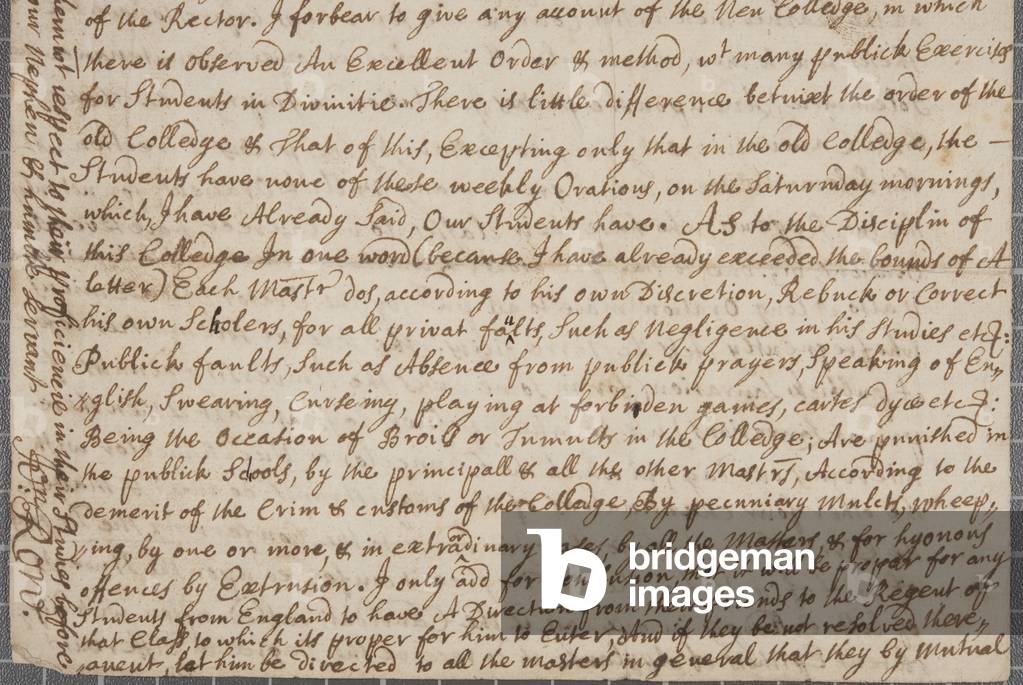 of the Rector. I forbear to give any account of the New Colledge, in which
there is observed An Excellent Order & method, wt many publick Exercises
for Students in Divinitie. There is little difference betwixt the order of the
old Colledge & That of this, Excepting only that in the old Colledge, the —
Students have none of these weekly Orations, on the Saturnday mornings,
which, I have Already Said, Our Students have. As to the Disciplin of
this Colledge In one word (because I have already exceeded the bounds of A
letter) Each Mastr dos, according to his own Discretion, Rebuck or Correct
his own Scholers, for all privat faults, Such as Negligence in his Studies etc:
Publick faults, Such as Absence from publick prayers, Speaking of En„
glish, Swearing, Curseing, playing at forbidden games, cartes dyce etc:
Being the Occasion of Broils or Tumults in the Colledge; Are punished in
the publick Schools, by the principall & all the other Mastrs, According to the
demerit of the Crim & customs of the Colledge, By pecuniary Mulcts, wheep„
ing, by one or more, & in extraordinary cases, by all the Masters & for hyonous
offences by Extrusion. I only add for conclusion, that it will be proper for any
Students from England to have A Direction from their friends to the Regent of
that Class to which its proper for him to Enter, And if they be not resolved there„
anent, let him be directed to all the masters in general that they by Mutual
bridgeman
images
hannot respect to thair proficiencie in their Studies before
our Nephew & humble Servant